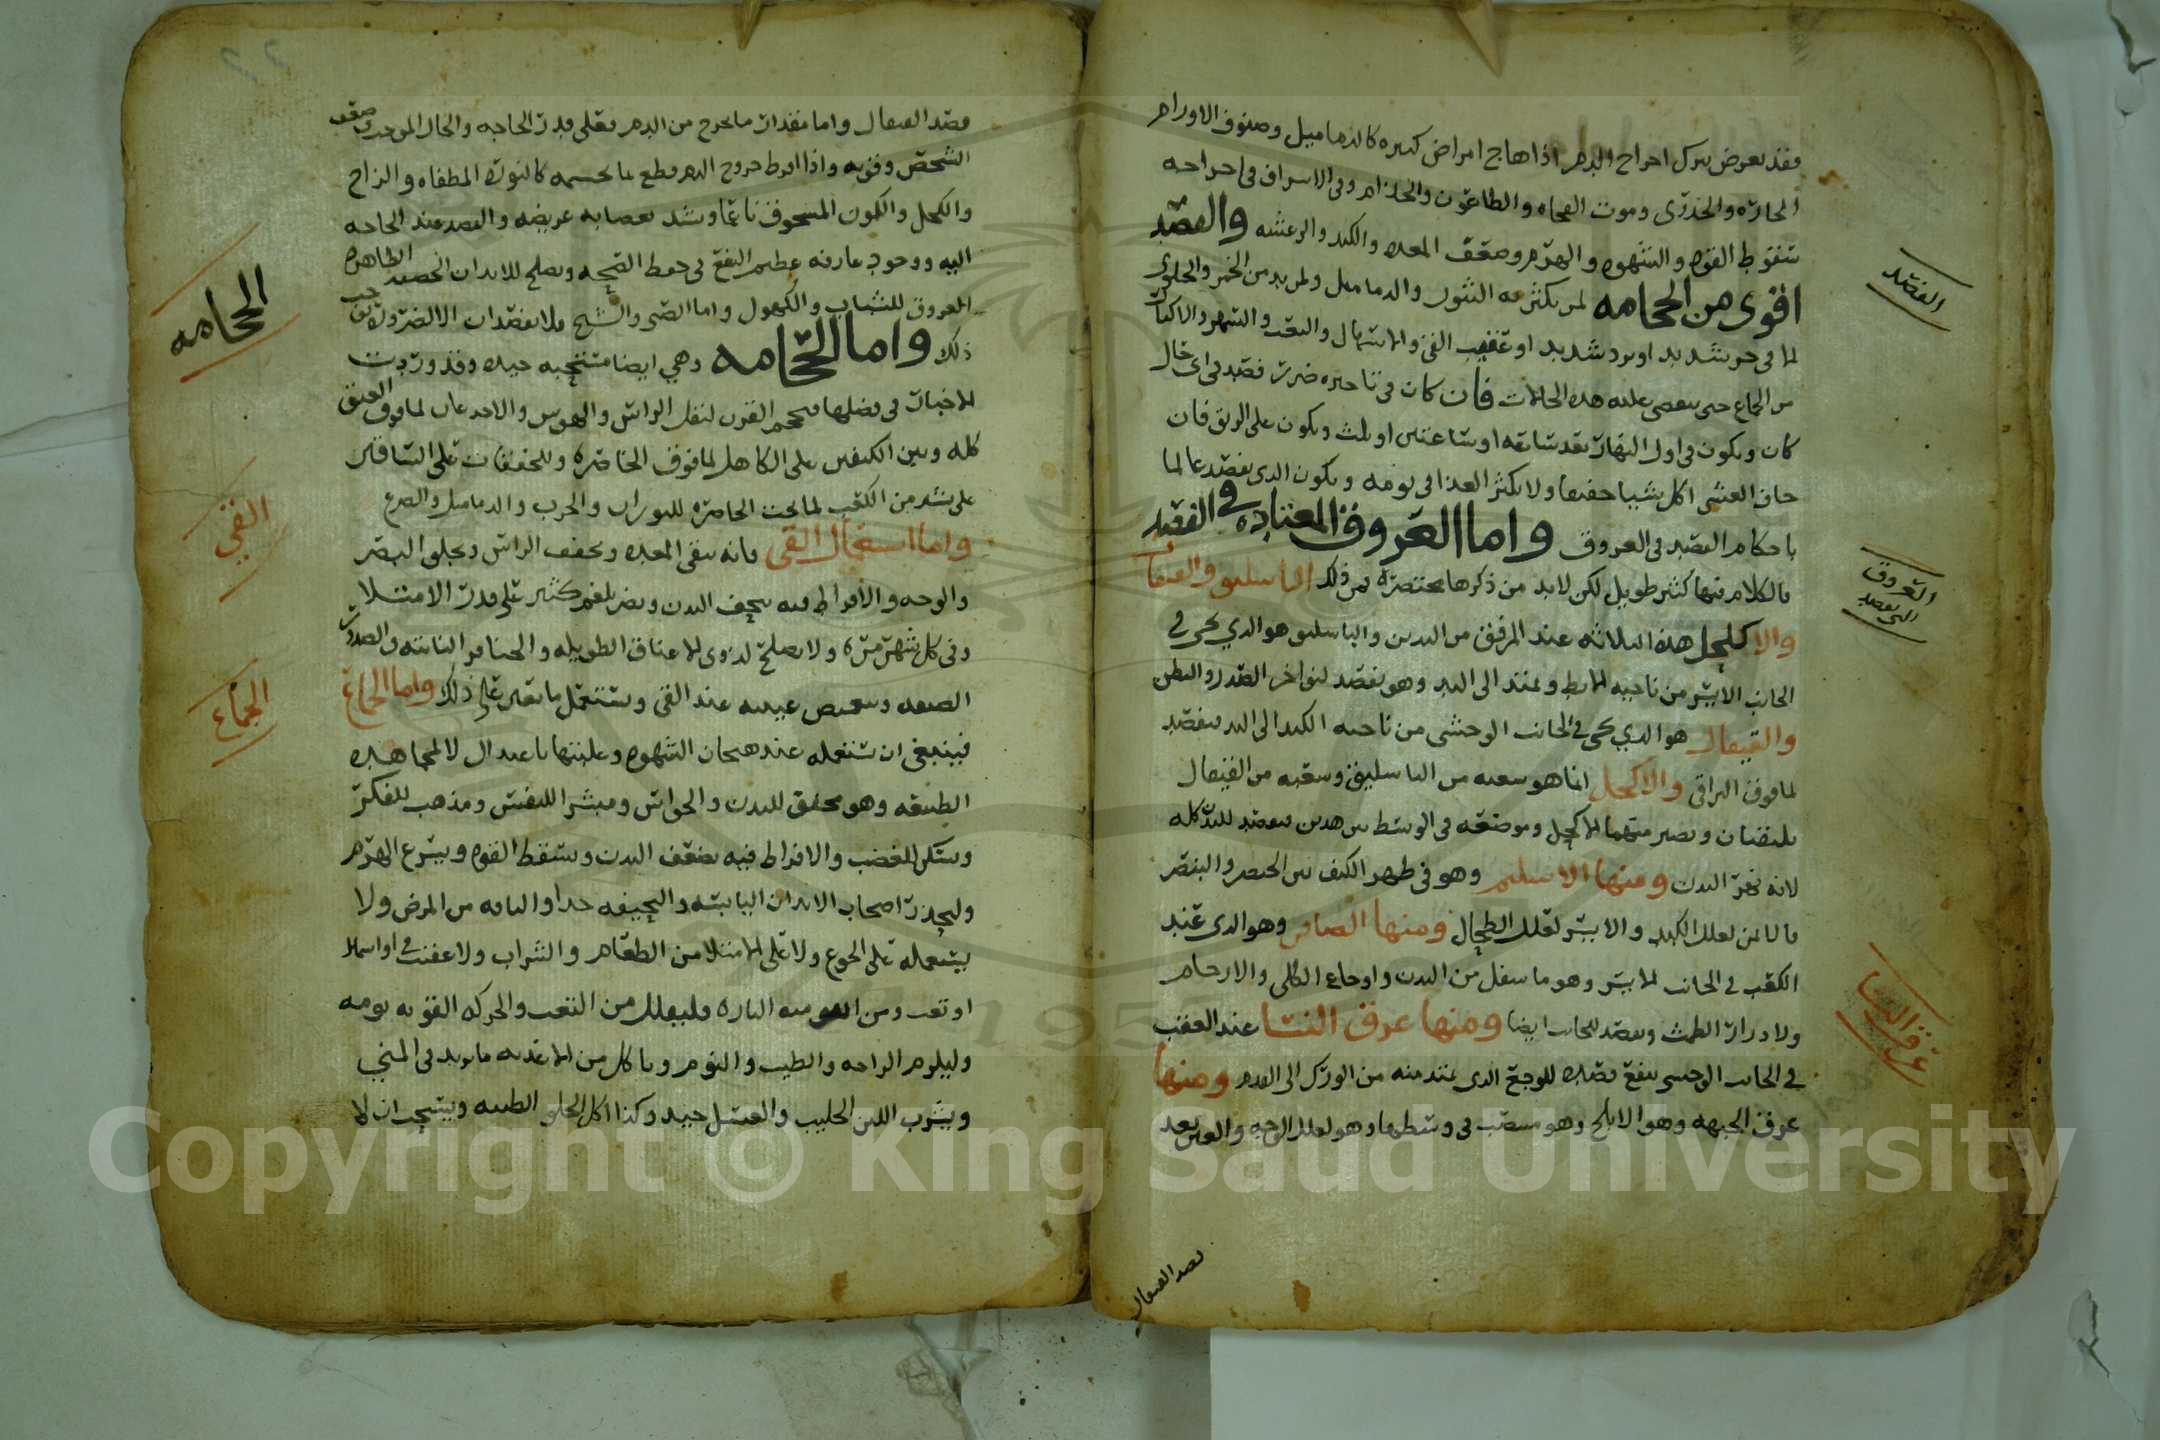 فقد يعرض بترك اخراج الدم اذا هاج امراض كثيره كالدماميل وصنوف الاورام
الحاره والخدرى وموت الفجاه والطاعون والجذام وفى الاسراف فى اخراجه
سقوط القوه والشهوه والهرم وضعف المعده والكبد والرعشه والفصد
اقوى من الحجامه لمن يكثر به البثور والدماميل ولمن يدمن الخمر والحلوى
لما فى حر شديد او برد شديد او عقيب القى والاسهال والتعب والسهر
من الجماع حتى يمضى عليه هذه الحالات فان كان فى تاخيره ضرر فصد فى اى حال
كان ويكون فى اول النهار بعد ساعه او ساعتين او ثلث ويكون على الريق فان
خاف الغشى اكل شيا خفيفا ولا يكثر الغذا فى يومه ويكون الذى يفصد عالما
باحكام الفصد فى العروق واما العروق المعتاده فى الفصد
فالكلام فيها كثير طويل لكن لابد من ذكرها مختصره فمن ذلك الباسليق والقيفال
والاكحل هذه الثلاثه عند المرفق من اليدين والباسليق هو الذي يجى فى
الجانب الايسر من ناحيه الابط ويمتد الى اليد وهو يفصد لنواخر الصدر والبطن
والقيفال هو الذي يجى فى الجانب الوحشى من ناحيه الكبد الى اليد يفصد
لما فوق التراقى والاكحل انما هو شعبه من الباسليق وشعبه من القيفال
يلتقيان ويصير منهما الاكحل وموضعه فى الوسط بين هذين يفصد للبدن كله
لانه نهر البدن ومنها الاسيلم وهو فى ظهر الكف بين الخنصر والبنصر
فالايمن لعلل الكبد والايسر لعلل الطحال ومنها الصافن وهو الذى عند
الكعب فى الجانب الايسر وهو ما سفل من البدن واوجاع الكلى والارحام
ولادرار الطمث ويفصد للجانب ايضا ومنها عرق النسا عند العقب
فى الجانب الوحشى ينفع فصده للوجع الذى يمتد منه من الورك الى القدم ومنها
عرق الجبهه وهو الابلج وهو منتصب فى وسطها وهو لعلل الوجه والعين بعد
فصد القيفال
الفصد
العروق
التى تفصد
عرق النسا
فصد القيفال واما مقدار ما يخرج من الدم فعلى قدر الحاجه والحال الموجب وضعف
الشخص وقوته واذا افرط خروج الدم قطع بما يحسمه كالنوره المطفاه والزاج
والكحل والكمون المسحوق ناعما ويشد بعصابه عريضه والفصد عند الحاجه
اليه ووجود عارفه عظيم النفع فى حفظ الصحه ويصلح للابدان الخصبه الظاهره
العروق للشباب والكهول واما الصبى والشيخ فلا يفصدان الا لضروره توجب
ذلك واما الحجامه وهي ايضا مستحبه جيده وقد وردت
الاخبار فى فضلها فيحجم القرن لثقل الراس والهوس والاخدعان لما فوق العنق
كله وبين الكتفين على الكاهل لما فوق الخاصره وللخفقان على الساقين
على شبر من الكعب لما تحت الخاصره للبوراں والجرب والدماميل والصرع
واما استعمال القى فانه ينقى المعده ويخفف الراس ويجلو البصر
والوجه والافراط فيه يجفف البدن ويضر بالفم كثير على قدر الامتلا
وفى كل شهر مره ولا يصلح لذوى الاعناق الطويله والحناجر الناتئه والصدور
الضيقه ويعصب عينيه عند القى ويستعمل ما يعين على ذلك واما الجماع
فينبغى ان يستعمله عند هيجان الشهوه وغلبتها باعتدال لا لمجاهده
الطبيعه وهو مخفف للبدن والحواس ومبشر للنفس ومذهب للفكر
ويسكن للغضب والافراط فيه يضعف البدن ويسقط القوه ويسرع الهرم
وليحذر اصحاب الابدان اليابسه والنحيفه جدا والناقه من المرض ولا
يستعمله على الجوع ولا على الامتلا من الطعام والشراب ولا عقيب قى او اسهال
او تعب ومن الباره فليقلل من التعب والحركه القويه يومه
وليلزم الراحه والطيب والنوم وياكل من الاغذيه ما يزيد فى المنى
ويشرب اللبن الحليب والعسل جيد وكذا اكل الحلو الطيبه ويستحب ان لا
الحجامه
القى
الجماع
Copyright © King Saud University
1957